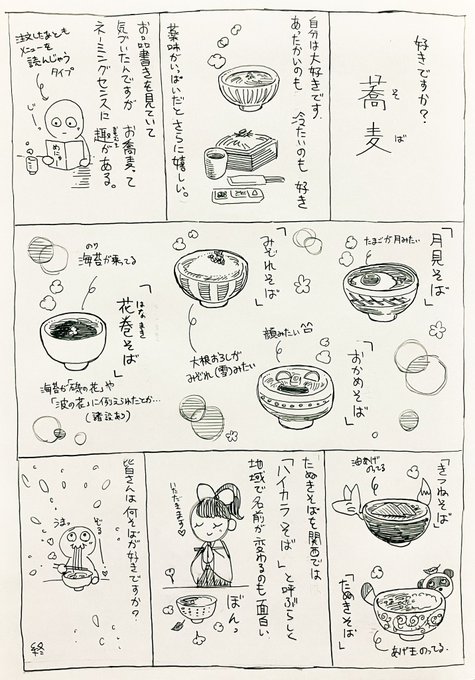 好きですか?
蕎麦
そ
ば
自分は大好きです。
あったかいのも 冷たいのも 好き
薬味がいっぱいだとさらに嬉しい。
お品書きを見ていて
気づいたんですが お蕎麦って
ネーミングセンスに
趣がある。
おもむき
注文したあとも
メニューを
読んじゃう
タイプ
めにゅー
「月見そば」
たまごが月みたい
「おかめそば」
顔みたい
「みぞれそば」
大根おろしが
みぞれ(雪)みたい
「花巻そば」
はな
まき
のり
海苔が乗ってる
海苔が「磯の花」や
「波の花」に例えられたとか…
(諸説あり)
「きつねそば」
油あげ
のってる
「たぬきそば」
あげ玉のってる。
たぬきそばを関西では
「ハイカラそば」と呼ぶらしく
地域で名前が変わるのも面白い
ぽん。
いただきます
皆さんは何そばが好きですか?
ずる
泣
終